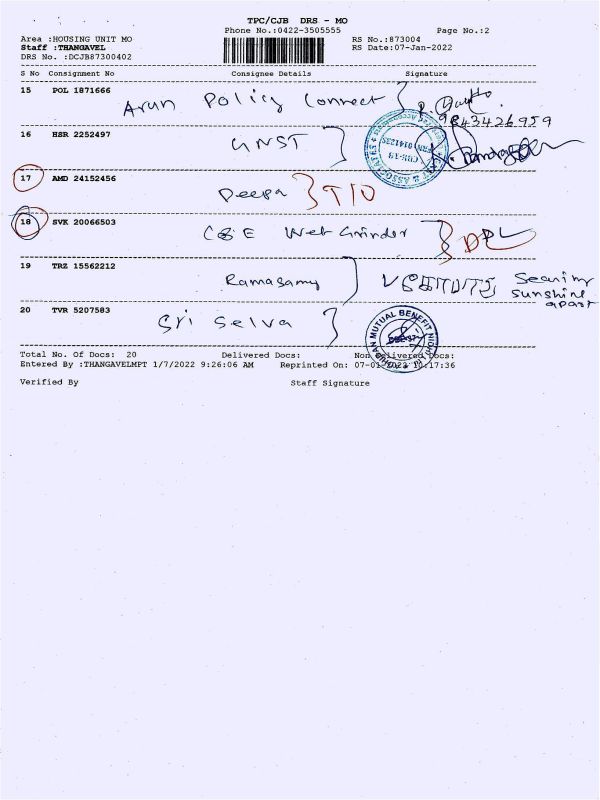 TPC/CJB DRS - MO
Phone No.:0422-3505555
Page No.:2
Area :HOUSING UNIT MO
RS No.:873004
Staff :THANGAVEL
RS Date:07-Jan-2022
DRS No. :DCJB87300402
S No Consignment No Consignee Details Signature
15 POL 1871666
Arun Policy Connect
9843426959
16 HSR 2252497
GNST
17 AMD 24152456
Deepa
18 SVK 20066503
CBE Wet Grinder
19 TRZ 15562212
Ramasamy
sunshine
apart
20 TVR 5207583
Sri Selva
Total No. Of Docs: 20 Delivered Docs: Non Delivered Docs:
Entered By :THANGAVELMPT 1/7/2022 9:26:06 AM Reprinted On: 07-01-2022 10:17:36
Verified By Staff Signature